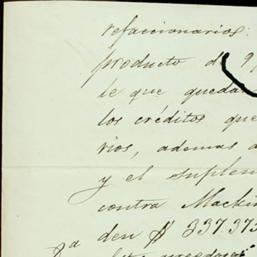 refaccionarios:
producto de
le que queda
los créditos que
rios, ademas
y el suplem
contra Mackin
den $ 237.375